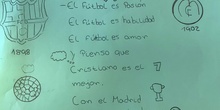 - El Fútbol es Balón
- El Fútbol es habilidad
El Fútbol es amor
Pienso que
Cristiano es el 7
mejor.
Con el Madrid
1898
1902